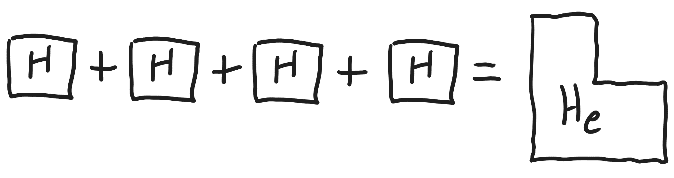 H + H + H + H = He